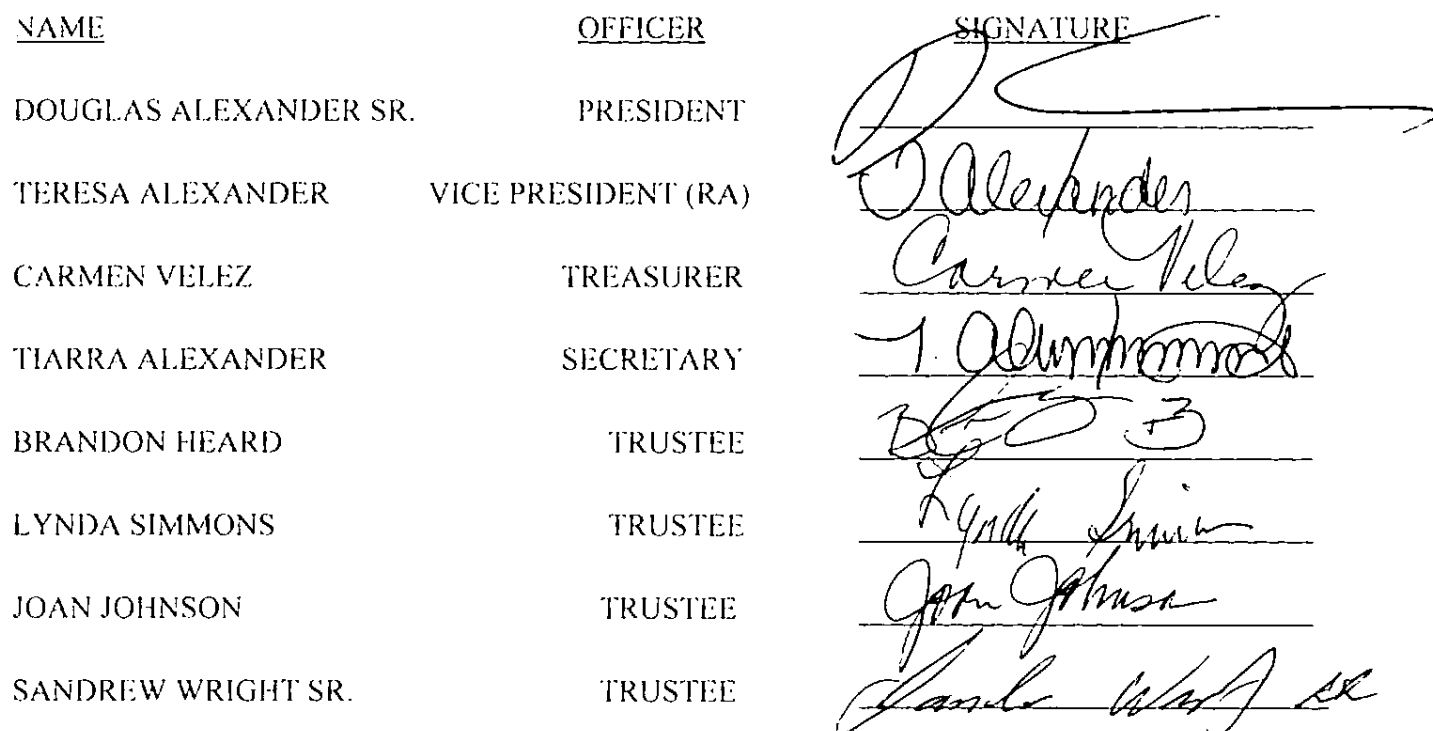 NAME OFFICER SIGNATURE
DOUGLAS ALEXANDER SR. PRESIDENT
TERESA ALEXANDER VICE PRESIDENT (RA) T Alexander
CARMEN VELEZ TREASURER Carmen Velez
TIARRA ALEXANDER SECRETARY T.
BRANDON HEARD TRUSTEE
LYNDA SIMMONS TRUSTEE Lynda
JOAN JOHNSON TRUSTEE Joan Johnson
SANDREW WRIGHT SR. TRUSTEE